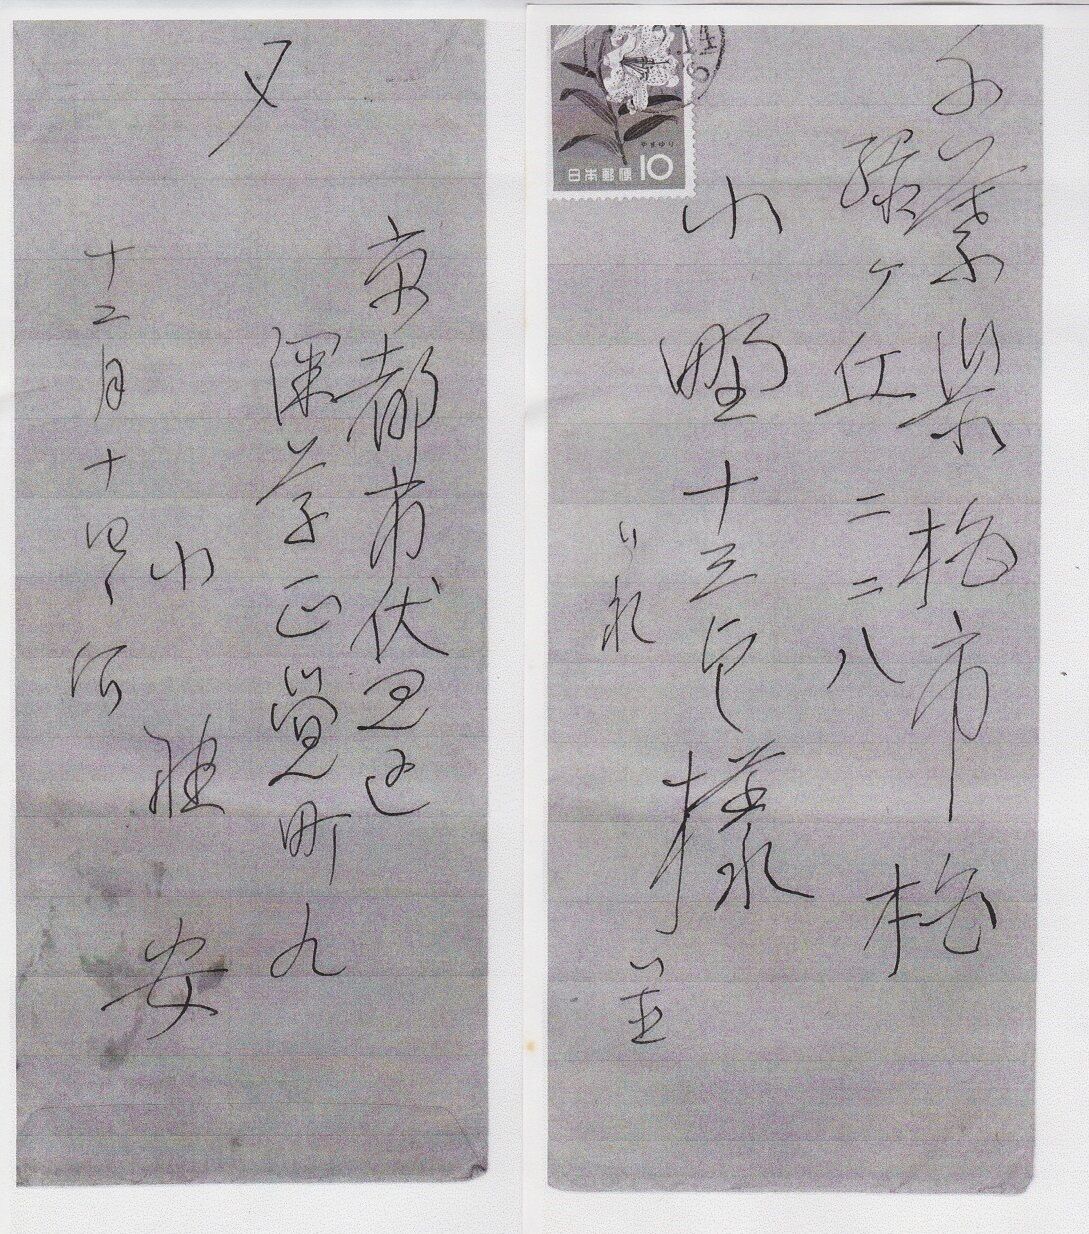 千葉県柏市柏
緑ヶ丘二二八
小野十三郎様
やまゆり
日本郵便 10
〆
京都市伏見区
深草正覚町九
十二月十四日